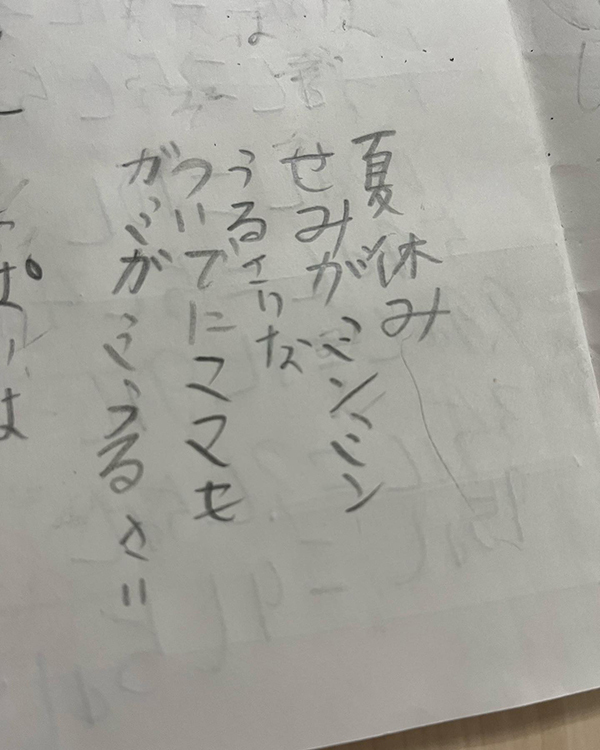 夏休み
せみがミンミン
うるさいな
ついでにママも
がみがみうるさい